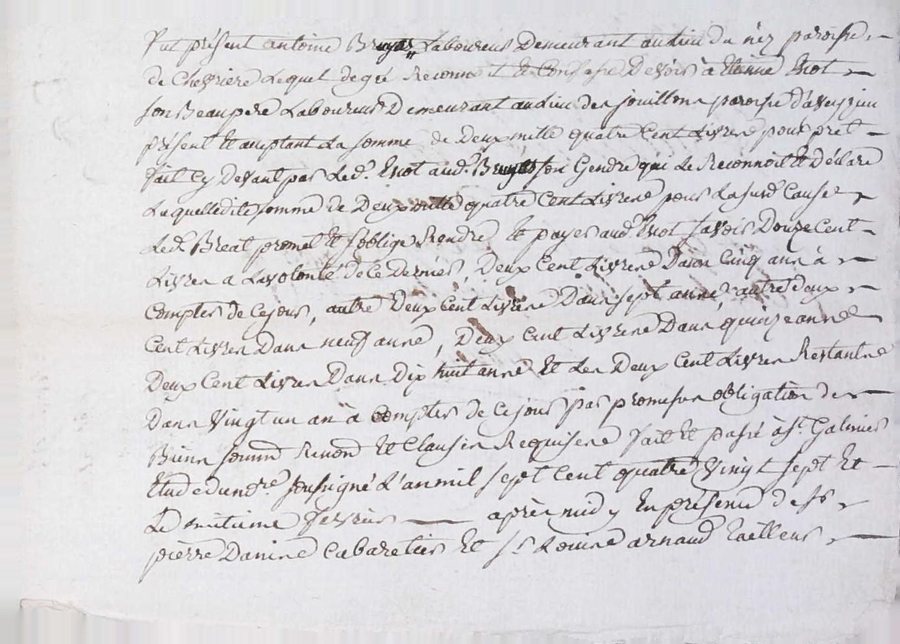 Fut présent antoine Laboureur Demeurant au lieu du néz paroisse
de Chevriere Lequel de gré Reconnoit Et Confesse Devoir à Etienne
son Beaupere Laboureur Demeurant au lieu des jouillons paroisse d'aveyzieu
présent Et acceptant La somme de Deux mille quatre Cent Livres pour prêt
fait Cy Devant par Led. aud. son Gendre qui Le Reconnoit Et déclare
Laquelledite somme de Deux mille quatre Cent Livres pour La susd. Cause
Led. promet Et soblige Rendre Et payer aud. savoir Douze Cent
Livres a La volonté de Ce Dernier, Deux Cent Livres Dans Cinq ans à
Compter de Ce jour, autre Deux Cent Livres Dans sept années, autre deux
Cent Livres Dans neuf années, Deux Cent Livres Dans quinze années
Deux Cent Livres Dans Dix huit années Et Les Deux Cent Livres Restantes
Dans Vingt un an à Compter de Ce jour par promesse obligation de
Biens soumis Renond Et Clauses Requises fait Et passé à St. Galmier
Etude du nre. soussigné L'an mil sept Cent quatre Vingt sept Et
Le fevrier après midy En présence de sr
pierre Cabaretier Et sr. arnaud Tailleur